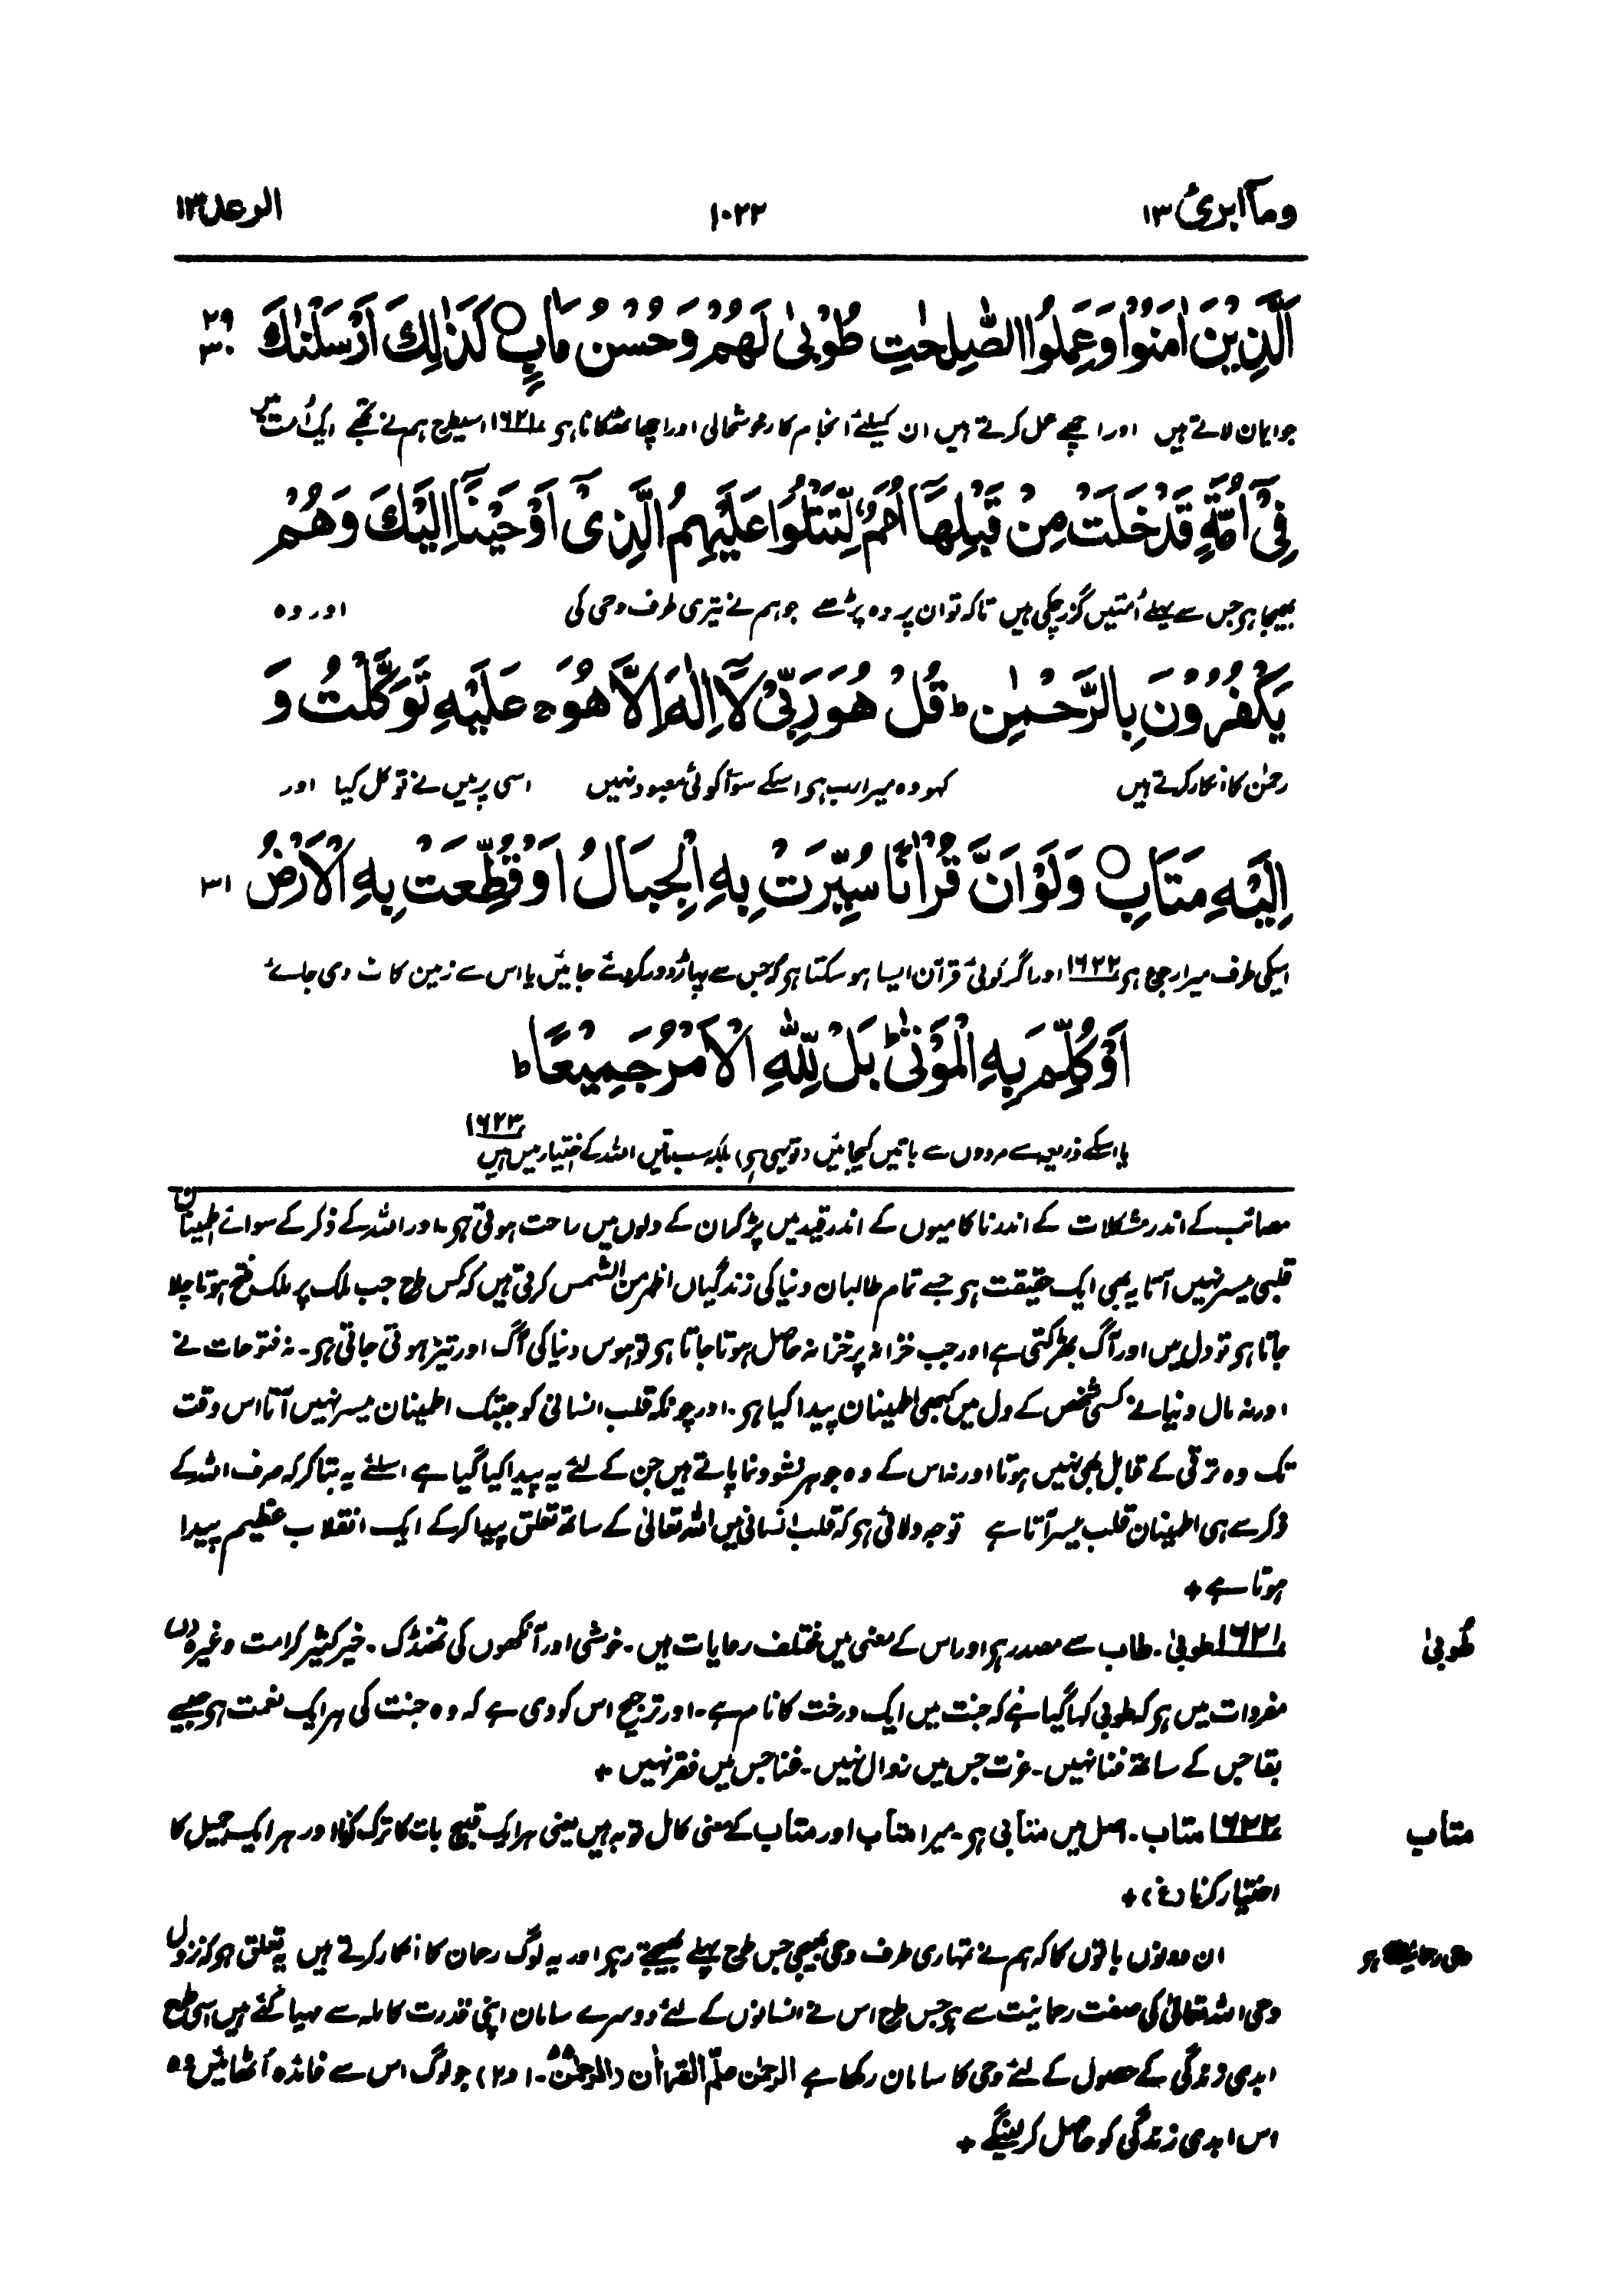 ومآ ابرئ ۱۳
۱۰۲۲
الرعد ۱۳
اَلَّذِيْنَ اٰمَنُوْا وَعَمِلُوا الصّٰلِحٰتِ طُوْبىٰ لَهُمْ وَحُسْنُ مَاٰبٍ ○ كَذٰلِكَ اَرْسَلْنٰكَ ۲۹ ۳۰
جو ایمان لاتے ہیں اور اچھے عمل کرتے ہیں ان کیلئے انجام کار خوشحالی اور اچھا ٹھکانا ہو ۱۶۲۱ اسیطرح ہم نے تجھے ایک اُمت میں
فِيْۤ اُمَّةٍ قَدْ خَلَتْ مِنْ قَبْلِهَاۤ اُمَمٌ لِّتَتْلُوَا عَلَيْهِمُ الَّذِيْۤ اَوْحَيْنَاۤ اِلَيْكَ وَهُمْ
بھیجا ہو جس سے پہلے اُمتیں گزر چکی ہیں تاکہ تو ان پر وہ پڑھے جو ہم نے تیری طرف وحی کی اور وہ
يَكْفُرُوْنَ بِالرَّحْمٰنِ ؕ قُلْ هُوَ رَبِّيْ لَاۤ اِلٰهَ اِلَّا هُوَ ۚ عَلَيْهِ تَوَكَّلْتُ وَ
رحمٰن کا انکار کرتے ہیں کہو وہ میرا رب ہو اسکے سوا کوئی معبود نہیں اسی پر میں نے توکل کیا اور
اِلَيْهِ مَتَابِ ○ وَلَوْ اَنَّ قُرْاٰنًا سُيِّرَتْ بِهِ الْجِبَالُ اَوْ قُطِّعَتْ بِهِ الْاَرْضُ ۳۱
اسیکی طرف میرا رجوع ہو ۱۶۲۲ اور اگر کوئی قرآن ایسا ہو سکتا ہو کہ جس سے پہاڑ دور کر دئے جائیں یا اس سے زمین کاٹ دی جائے
اَوْ كُلِّمَ بِهِ الْمَوْتٰى ؕ بَلْ لِّلّٰهِ الْاَمْرُ جَمِيْعًا ؕ
یا اسکے ذریعہ سے مردوں سے باتیں کیجائیں (تو یہی ہو) بلکہ سب باتیں اللہ کے اختیار میں ہیں ۱۶۲۳
مصائب کے اندر مشکلات کے اندر ناکامیوں کے اندر قید میں پڑ کر ان کے دلوں میں راحت ہوتی ہو۔ اور اللہ کے ذکر کے سوائے اطمینان
قلبی میسر نہیں آتا یہ بھی ایک حقیقت ہو جسے تمام طالبان دنیا کی زندگیاں اظہر من الشمس کرتی ہیں کہ کس طرح جب ملک پر ملک فتح ہوتا چلا
جاتا ہو تو دل میں اور آگ بھڑکتی ہے اور جب خزانہ پر خزانہ حاصل ہوتا جاتا ہو تو ہوس دنیا کی آگ اور تیز ہوتی جاتی ہو۔ نہ فتوحات نے
اور نہ مال دنیا نے کسی شخص کے دل میں کبھی اطمینان پیدا کیا ہو۔ اور چونکہ قلب انسانی کو جبتک اطمینان میسر نہیں آتا اس وقت
تک وہ ترقی کے قابل بھی نہیں ہوتا اور نہ اس کے وہ جوہر نشوونما پاتے ہیں جن کے لئے یہ پیدا کیا گیا ہے اسلئے یہ بتا کر کہ صرف اللہ کے
ذکر سے ہی اطمینان قلب میسر آتا ہے توجہ دلائی ہو کہ قلب انسانی میں اللہ تعالیٰ کے ساتھ تعلق پیدا کرکے ایک انقلاب عظیم پیدا
ہوتا ہے +
طُوبیٰ
۱۶۲۱ طوبیٰ۔ طاب سے مصدر ہو اور اس کے معنی میں مختلف روایات ہیں۔ خوشی اور آنکھوں کی ٹھنڈک۔ خیر کثیر کرامت وغیرہ (ل)
مفردات میں ہو کہ طوبیٰ کہا گیا ہے کہ جنت میں ایک درخت کا نام ہے۔ اور ترجیح اس کو دی ہے کہ وہ جنت کی ہر ایک نعمت ہو جیسے
بقا جس کے ساتھ فنا نہیں۔ عزت جس میں زوال نہیں۔ غنا جس میں فقر نہیں +
متاب
۱۶۲۲ متاب۔ اصل میں متابی ہو۔ میرا متاب اور متاب کے معنی کامل توبہ ہیں یعنی ہر ایک قبیح بات کا ترک کرنا اور ہر ایک جمیل کا
اختیار کرنا (غ) +
ان دونوں باتوں کا کہ ہم نے تمہاری طرف وحی بھیجی جس طرح پہلے بھیجتے رہے اور یہ لوگ رحمان کا انکار کرتے ہیں یہ تعلق ہو کہ نزول
وحی اللہ تعالیٰ کی صفت رحمانیت سے ہو جس طرح اس نے انسانوں کے لئے دوسرے سامان اپنی قدرت کاملہ سے مہیا کئے ہیں اسی طرح
ابدی زندگی کے حصول کے لئے وحی کا سامان رکھا ہے الرحمٰن علّم القراٰن (الرحمٰن ۵۵۔ ۱ و ۲) جو لوگ اس سے فائدہ اُٹھائیں وہ
اس ابدی زندگی کو حاصل کرلینگے +